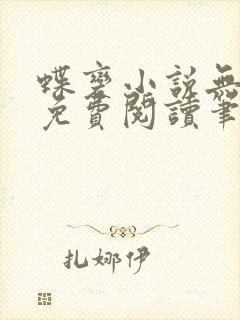 蝶变小說無
免費閱讀筆
扎娜伊